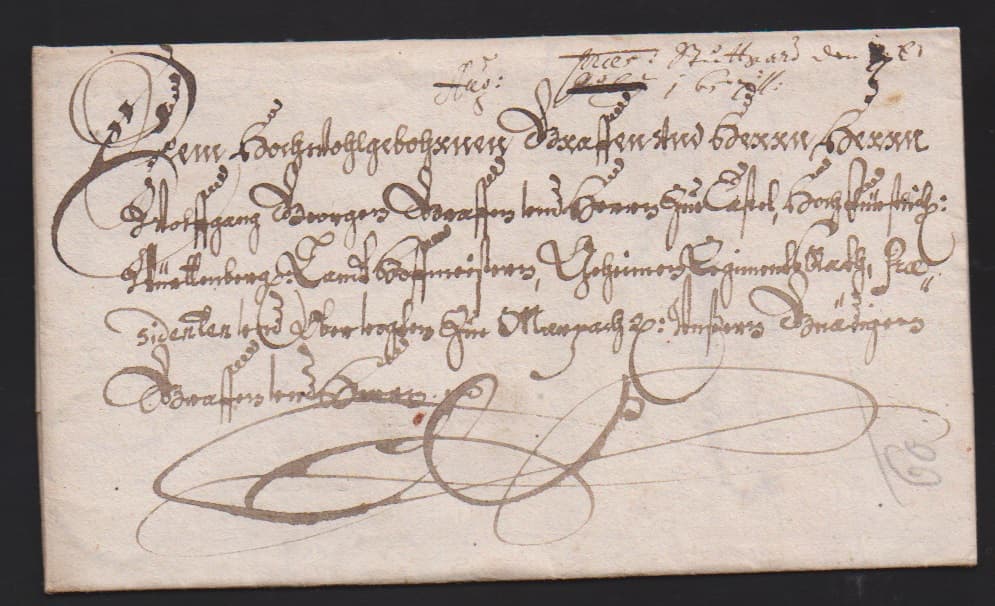 Stuttgard den
Dem Hochwohlgebohrnen Graffen und Herrn Herrn
Wolffgang Georgen Graffen und Herrn Zue Castel, Hochfürstlich:
Württenberg: Landt Hoffmeistern, Geheimen Regiments Rath, Præ-
sidenten und Obervogten Zue Marpach
Gnädigen
Graffen und Herrn
60